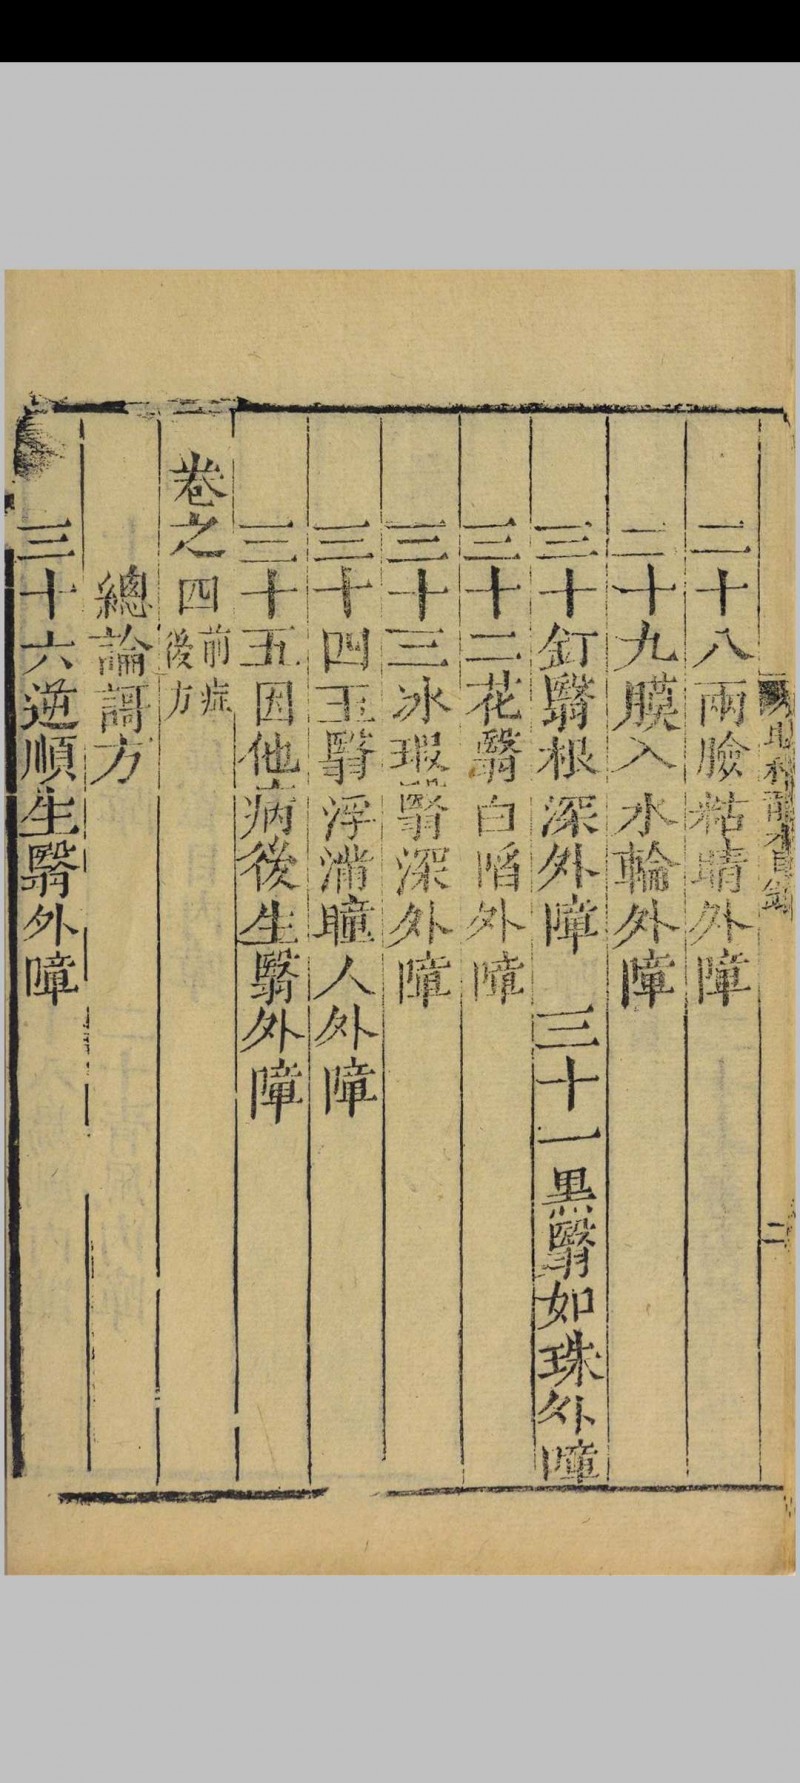 二十八兩臉粘睛外障
二十九膜入水輪外障
三十釘翳根深外障　三十一黑翳如珠外障
三十二花翳白陷外障
三十三冰瑕翳深外障
三十四玉翳浮滿瞳人外障
三十五因他病後生翳外障
卷之四前症後方
總論謌方
三十六逆順生翳外障
二